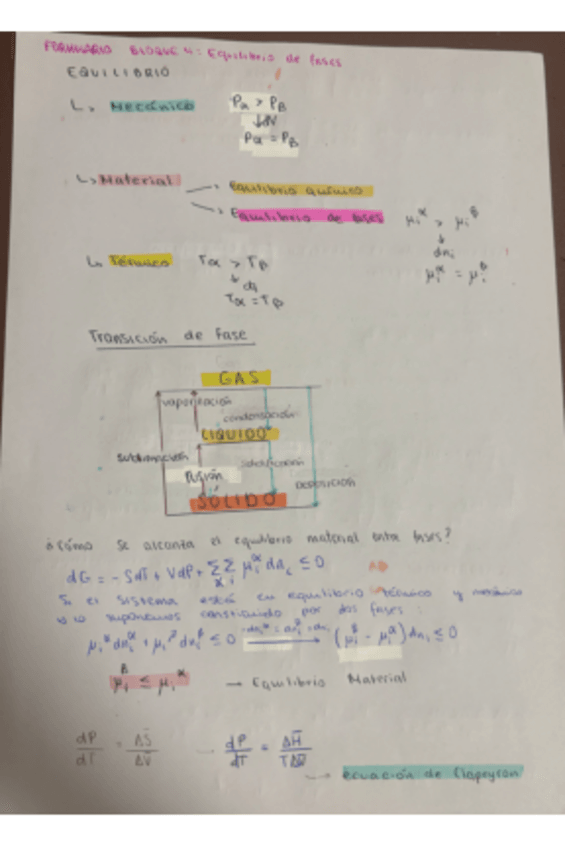 FORMULARIO BLOQUE 4: Equilibrio de fases
EQUILIBRIO
↳ Mecánico Pα > Pβ
↓dV
Pα = Pβ
↳ Material → Equilibrio químico
→ Equilibrio de fases μiα > μiβ
↓
dni
μiα = μiβ
↳ Térmico Tα > Tβ
↓ dq
Tα = Tβ
Transición de Fase
GAS
vaporización
condensación
LIQUIDO
sublimación
solidificación
Fusión
deposición
SÓLIDO
¿Cómo se alcanza el equilibrio material entre fases?
dG = -SdT + VdP + ΣΣ μiα dni ≤ 0
Si el sistema está en equilibrio térmico y mecánico
y lo suponemos constituido por dos fases:
μiα dniα + μiβ dniβ ≤ 0 -dniα = dniβ = dni → (μiβ - μiα) dni ≤ 0
μiβ ≤ μiα → Equilibrio Material
dP/dT = ΔS̄/ΔV̄ → dP/dT = ΔH̄/TΔV̄
→ ecuación de Clapeyron